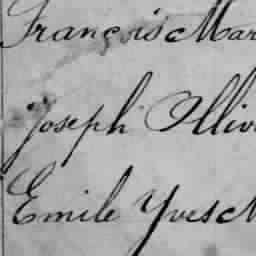 François Mar
Joseph Olliv
Emile Yves M